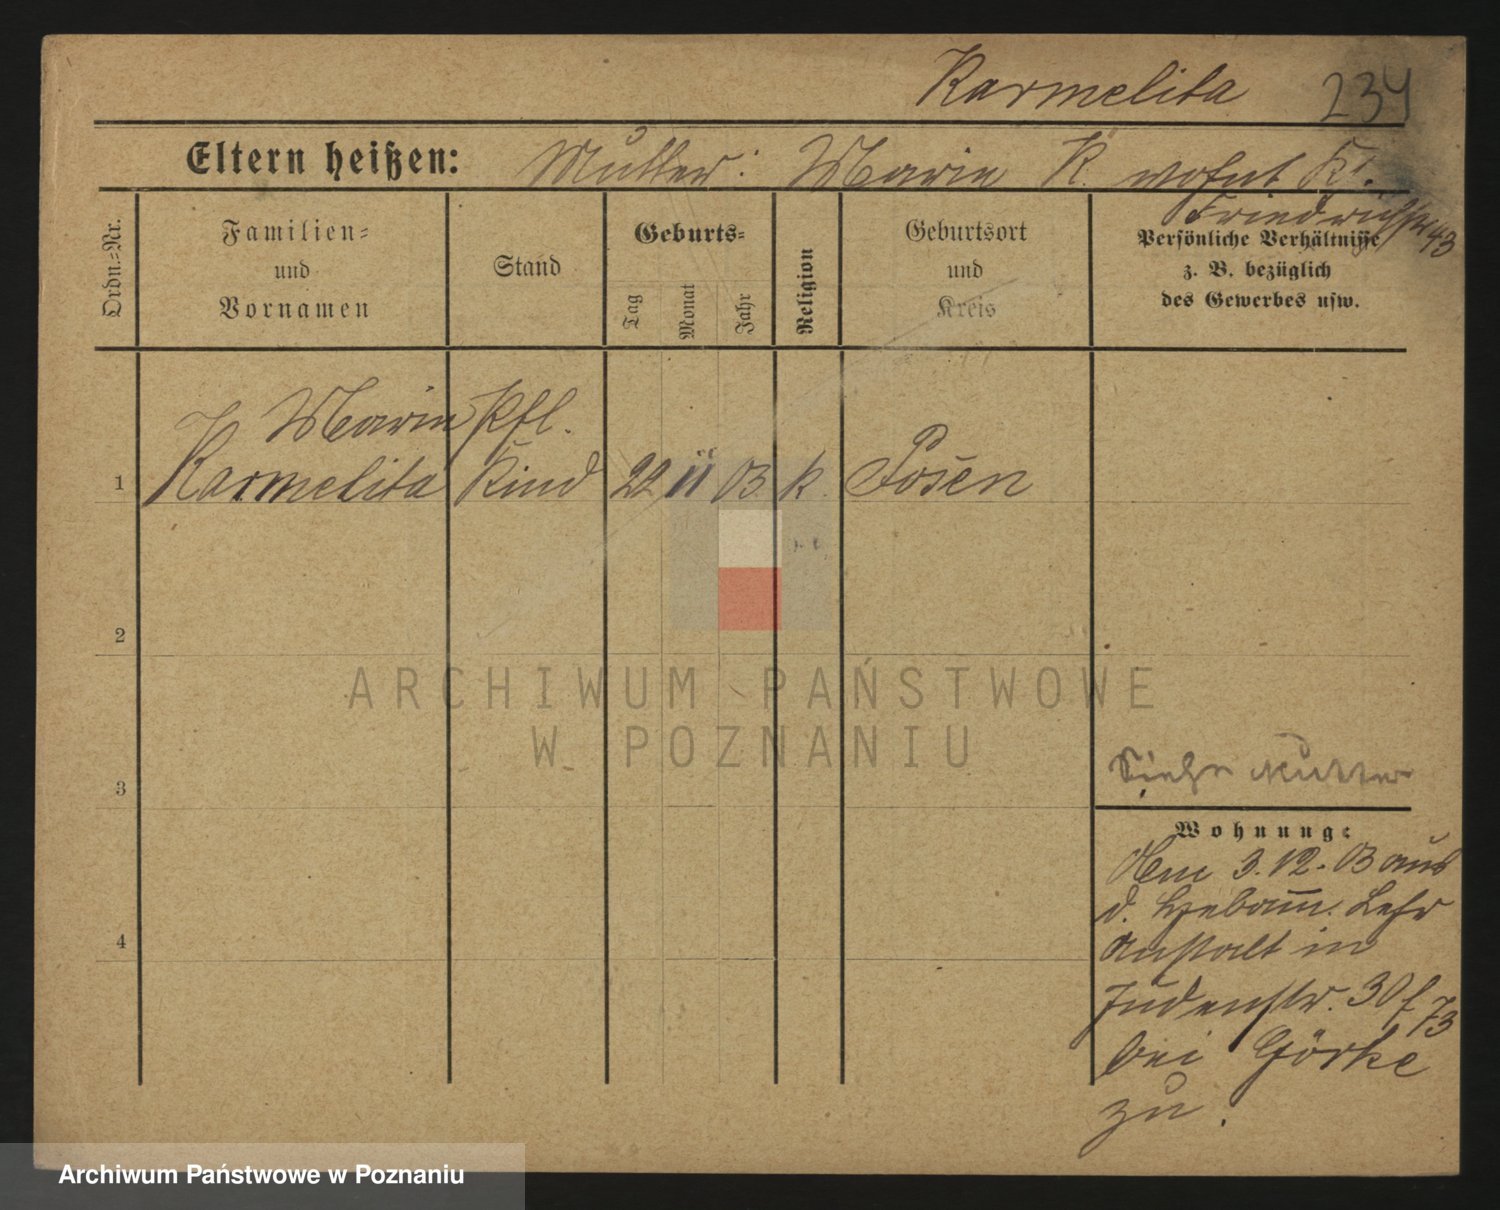 Karmelita 234
Eltern heißen: Mutter: Marie K. wohnt Kl.
Friedrichstr 43
Ordn.-Nr.
Familien-
und
Vornamen
Stand
Geburts-
Tag
Monat
Jahr
Religion
Geburtsort
und
Kreis
Persönliche Verhältnisse
z. B. bezüglich
des Gewerbes usw.
Marie Pfl.
1 Karmelita Kind 22 11 03 k. Posen
2
ARCHIWUM PAŃSTWOWE
W POZNANIU
Siehe Mutter
3
Wohnung:
Am 3.12.03 aus
d. Hebamm. Lehr
4 anstalt in
Judenstr. 30 f 73
bei Görke
zu.
Archiwum Państwowe w Poznaniu